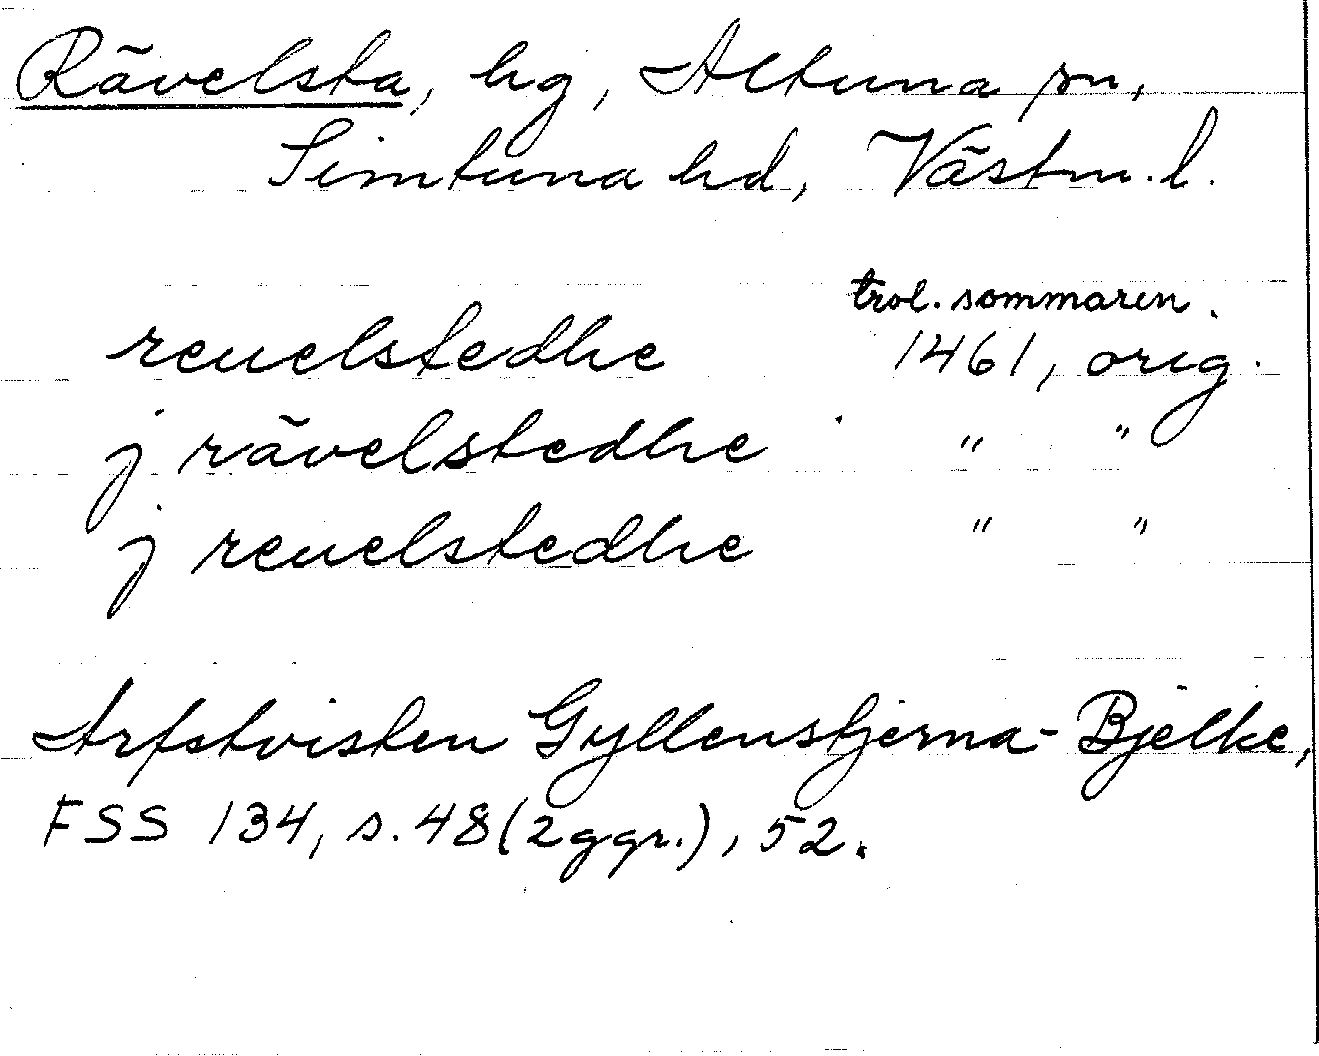 Rävelsta, hg, Altuna sn,
Simtuna hd, Västm. l.
trol. sommaren.
reuelstedhe 1461, orig.
j rävelstedhe " "
j reuelstedhe " "
Arfstvisten Gyllenstjerna-Bjelke,
FSS 134, s. 48 (2 ggr.), 52.